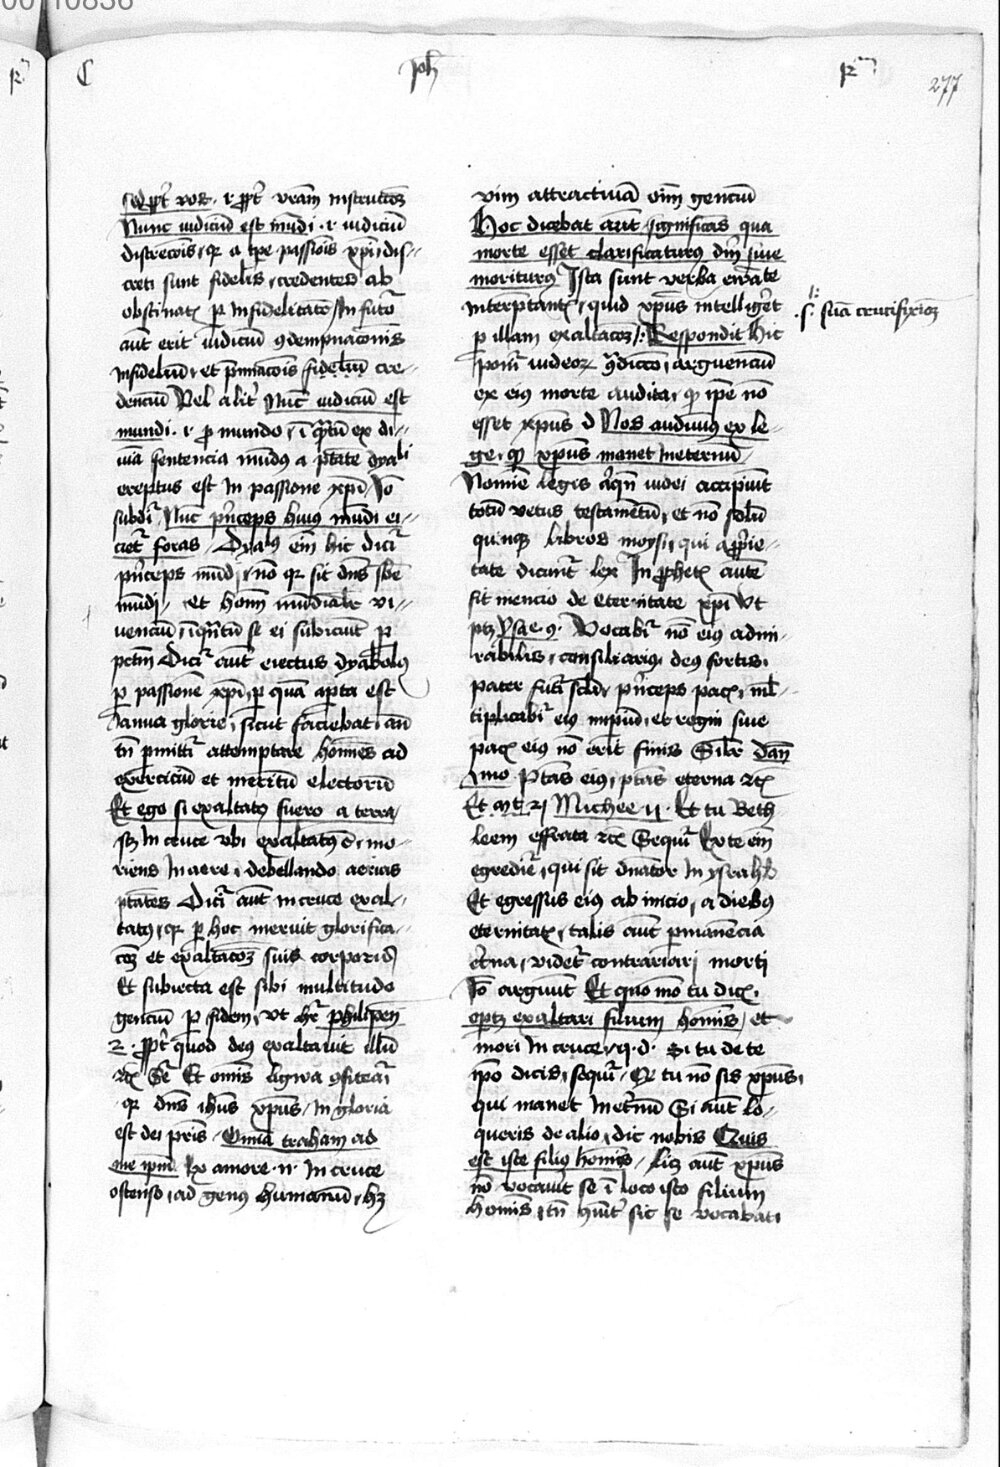 C Joh 12m 277
sed propt vos · i propt vram instructoz
Nunc iudiciu est mudi · i iudiciu
discrecois, qr a tpe passiois xpi dis-
creti sunt fideles, credentes ab
obstinatis p infidelitate, In futo
aut erit iudiciu gdempnacois
infideliu, et pmiacois fideliu cre-
denciu Vel alit Nuc iudiciu est
mundi · i p mundo, i qtu ex di-
uia sentencia mudus a ptate dyali
ereptus est in passione xpi, Io
subdit Nuc pnceps huius mudi ei-
ciet foras, Dyabs eim hic dicit
pnceps mudi, no qr sit dns sbe
mudi, et homi mudialit vi-
uenciu, iqtu se ei subiciut p
pctm Dicit aut eiectus dyabolus
p passione xpi, p qua apta est
Ianua glorie, sicut faciebat, an
tn pmittit attemptare homies ad
exerciciu et meritu electoru
Et ego si exaltatus fuero a terra,
scz in cruce vbi exaltatus e, mo-
riens in aere, debellando aerias
ptates Dicit aut in cruce exal-
tatus, qr p hoc meruit glorifica-
coz et exaltacoz suis corporis
Et subiecta est sibi multitudo
genciu p fidem, vt hr philipen
2 · propt quod deus exaltauit illu
etc Sr Et omis ligwa gfiteat
qr dns ihus xpus, in gloria
est dei pris, Omia traham ad
me ipm Ex amore · n · in cruce
ostenso, ad genus humanu, hz
vim attractiua oim genciu
Hoc dicebat aut significas qua
morte esset clarificaturus dm siue
moriturus Ista sunt verba ewate
interptantis, quid xpus intelligeret
p illam exaltacoz Respondit hic
·s· sua crucifixioz
ponit iudeorz gdiccio, arguenciu
ex eius morte audita, qp ipe no
esset xpus d Nos audiuimus ex le-
ge, qp xpus manet ineternu
Nomie legis aliqn iudei accipiut
totu vetus testametu, et no solu
quinqz libros moysi, qui apprie-
tate dicunt lex In prophetis aute
fit mencio de eternitate xpi vt
ptz ysae · 9 · Vocabit no eius admi-
rabilis, consiliarius, deus fortis,
pater futi scli, pnceps pacis, ml-
tiplicabit eius impiu, et regni siue
pacis eius no erit finis Silr dan
imo Ptas eius, ptas eterna etc
Michee v · Et tu Beth
leem effrata etc Sequit Ex te eim
egrediet, qui sit dnator in ysrahel
Et egressus eius ab inicio, a diebus
eternitatis, talis aut pmanencia
etna, videt contrariari morti
Io arguut Et quo mo tu dicis,
optz exaltari filium homis, et
mori in cruce, q · d · Si tu de te
ipo dicis, sequit, Qr tu no sis xpus,
qui manet inetnu Si aut lo-
queris de alio, dic nobis Quis
est iste filius homis, licz aut xpus
no vocauit se i loco isto filium
homis, tn gnit sic se vocabat,